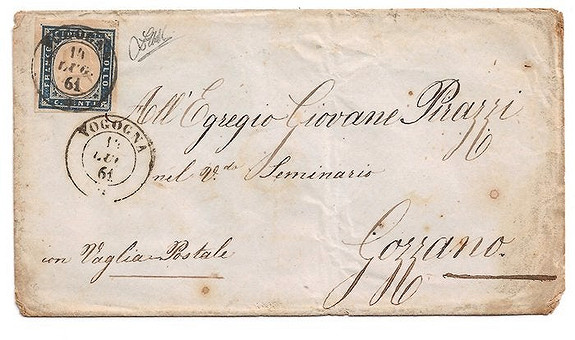 FRANCO BOLLO
C. VENTI
14
LUG
61
All'Egregio Giovane Pirazzi
VOGOGNA
14
LUG
61
nel V.do Seminario
con Vaglia Postale
Gozzano.